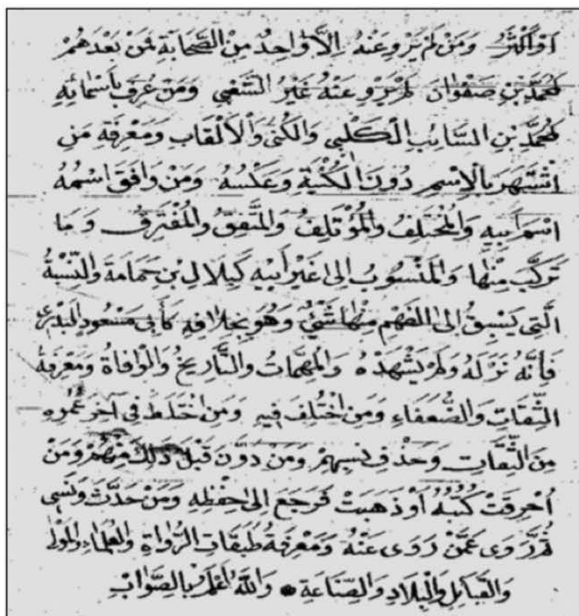 اَوْ اَكْثَرُ وَمَنْ لَمْ يَرْوِ عَنْهُ اِلَّا وَاحِدٌ مِنَ الصَّحَابَةِ فَمَنْ بَعْدَهُمْ
كَمُحَمَّدِ بْنِ صَفْوَانَ لَمْ يَرْوِ عَنْهُ غَيْرُ الشَّعْبِي وَمَنْ عُرِفَ بِاَسْمَائِهِ
كَمُحَمَّدِ بْنِ السَّائِبِ الْكَلْبِي وَالْكُنَى وَالْاَلْقَابِ وَمَعْرِفَةِ مَنِ
اشْتَهَرَ بِالْاِسْمِ دُونَ الْكُنْيَةِ وَعَكْسُهُ وَمَنْ وَافَقَ اسْمُهُ
اسْمَ اَبِيهِ وَالْمُخْتَلِفُ وَالْمُؤْتَلِفُ وَالْمُتَّفِقُ وَالْمُفْتَرِقُ وَمَا
تَرَكَّبَ مِنْهَا وَالْمَنْسُوبُ اِلَى غَيْرِ اَبِيهِ كَبِلَالِ بْنِ حَمَامَةَ وَالنِّسْبَةُ
الَّتِي يَسْبِقُ اِلَى الْفَهْمِ مِنْهَا شَيْئٌ وَهُوَ بِخِلَافِهِ كَاَبِى مَسْعُودٍ الْبَدْرِى
فَاِنَّهُ نَزَلَهُ وَلَمْ يَشْهَدْهُ وَالْمُبْهَمَاتُ وَالتَّارِيخُ وَالْوَافَاةُ وَمَعْرِفَةُ
الثِّقَاتِ وَالضُّعَفَاءِ وَمَنِ اخْتُلِفَ فِيهِ وَمَنِ اخْتَلَطَ فِى آخِرِ عُمُرِهِ
مِنَ الثِّقَاتِ وَحَذْفِ نسبهم وَمَنْ دَوَّنَ قَبْلَ ذَلِكَ مِنْهُمْ وَمَنْ
اُحْرِقَتْ كُتُبُهُ اَوْ ذَهَبَتْ فَرَجَعَ اِلَى حِفْظِهِ وَمَنْ حَدَّثَ وَنَسِىَ
ثُمَّ رَوَى عَمَّنْ رَوَى عَنْهُ وَمَعْرِفَةُ طَبَقَاتِ الرُّوَاةِ وَالْعُلَمَاءِ وَالْمَوَالِى
وَالْقَبَائِلِ وَالْبِلَادِ وَالصِّنَاعَةِ • وَاللّٰهُ اَعْلَمُ بِالصَّوَابِ